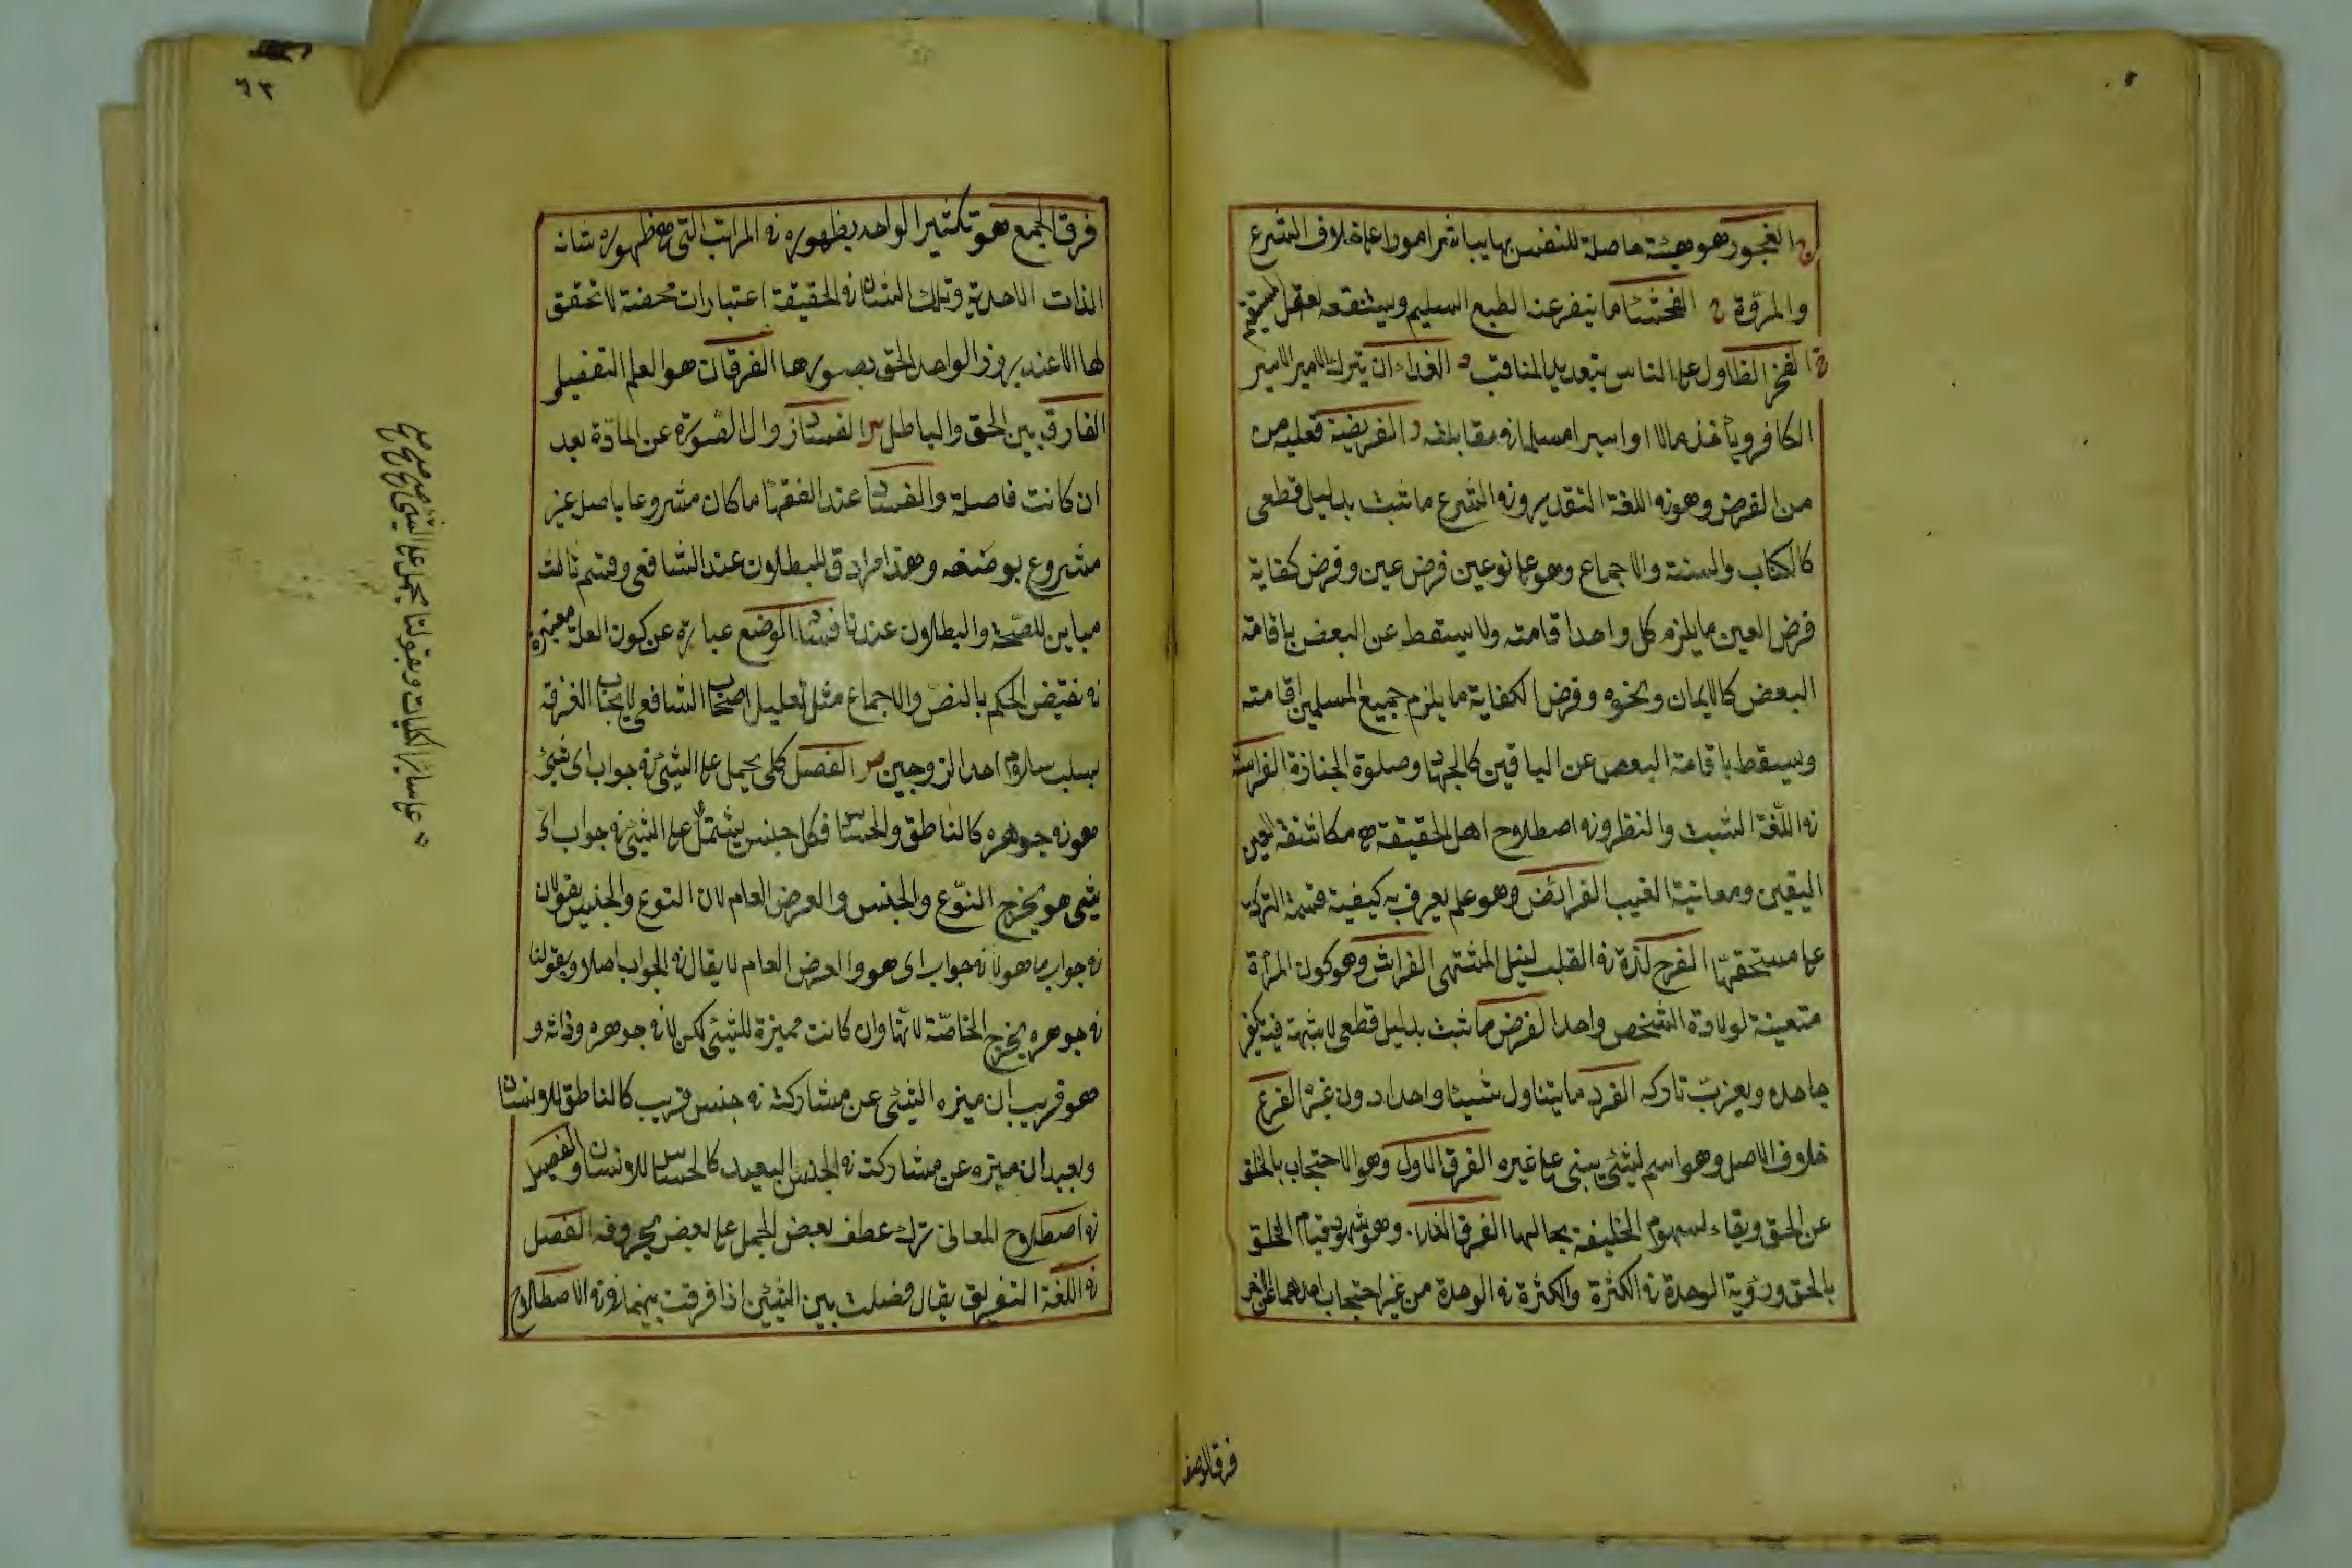 ج الفجور هو هيئة حاصلة للنفس بها يباشر امورا على خلاف الشرع
والمروّة ح الفحشا ما ينفر عنه الطبع السليم ويستنقصه العقل المستقيم
خ الفخر التطاول على الناس بتعديد المناقب د الفداء ان يترك الامير الاسير
الكافر ويأخذ مالا او اسيرا مسلما في مقابلته ر الفريضة فعلية من
من الفرض وهو في اللغة التقدير وفي الشرع ما ثبت بدليل قطعى
كالكتاب والسنة والاجماع وهو على نوعين فرض عين وفرض كفاية
فرض العين ما يلزم كل واحد اقامته ولا يسقط عن البعض باقامة
البعض كالايمان ونحوه وفرض الكفاية ما يلزم جميع المسلمين اقامته
ويسقط باقامة البعض عن الباقين كالجهاد وصلوة الجنازة الفراسة
في اللّغة التثبت والنظر وفي اصطلاح اهل الحقيقة هي مكاشفة اليقين
اليقين ومعاينة الغيب الفرائض وهو علم يعرف به كيفية قسمة التركة
على مستحقها الفرح لذة في القلب لنيل المشتهى الفراش وهو كون المرأة
متعينة لولادة الشخص واحد الفرض ما ثبت بدليل قطعى لا شبهة فيه يكفر
جاحده ويعذب تاركه الفرد ما يتناول شيئا واحدا دون غيره الفرع
خلاف الاصل وهو اسم لشئ يبنى على غيره الفرق الاول وهو الاحتجاب بالخلق
عن الحق وبقاء لسهوم الخليقة بحالها الفرق الثاني وهو شهود قيام الخلق
بالحق ورؤية الوحدة في الكثرة والكثرة في الوحدة من غير احتجاب احدهما عن الاخر
فرق الوصف
٦٣
فرق الجمع هو تكثير الواحد بظهوره في المراتب التى هي ظهوره شان
الذات الاحدية وتلك الشان في الحقيقة اعتبارات محضة لا تحقق
لها الا عند بروز الواحد الحق بصورها الفرقان هو العلم التفصيلى
الفارق بين الحق والباطل س الفساد زوال الصّورة عن المادّة بعد
ان كانت حاصلة والفساد عند الفقها ما كان مشروعا باصله غير
مشروع بوصفه وهذا مرادق للبطلان عند الشافعى وقسم ثالث
مباين للصّحة والبطلان عندنا فساد الوضع عبارة عن كون العلة معتبرة
في نقيض الحكم بالنص والاجماع مثل تعليل اصحاب الشافعى لايجاب الفرقة
بسبب سلام احد الزوجين ص الفصل كلى يحمل على الشئ في جواب اى شئ
هو في جوهره كالناطق والحساس فكل جنس يشتمل على الشئ في جواب اىّ
شئ هو يخرج النّوع والجنس والعرض العام لان النوع والجنس يقولان
في جواب ما هو لا في جواب اى هو والعرض العام لا يقال في الجواب اصلا وبقولنا
في جوهره يخرج الخاصّة لانّها وان كانت مميزة للشئ لكن لا في جوهره وذاته و
هو قريب ان ميزه الشئ عن مشاركته في جنس قريب كالناطق للانسان
وبعيد ان ميزه عن مشاركته في الجنس البعيد كالحساس للانسان والفصل
في اصطلاح المعانى ترك عطف بعض الجمل على بعض بحروفه الفصل
في اللغة التفريق يقال فصلت بين الشئين اذا فرقت بينهما وفي الاصطلاح
على سائر الكليات وبقولنا يحمل على الشئ صح صح صح